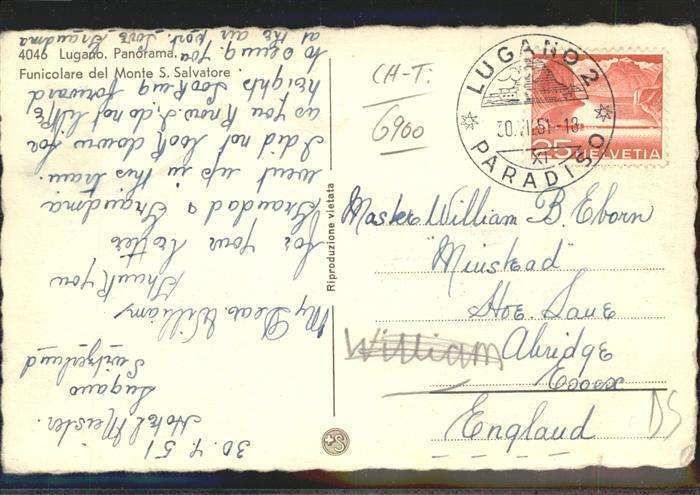 4046 Lugano. Panorama.
Funicolare del Monte S. Salvatore.
30.4.51
Hotel Meister.
Lugano
Switzerland
My Dear William,
Thank you
for your letter
Grandad & Grandma
went up in this train.
I did not look down for
as you know I do not like
heights looking forward
to seeing you
at the air port. love Grandma
Riproduzione vietata
CH-T.
6900
LUGANO 2
51-18
XI
PARADISO
25 HELVETIA
Master William B. Eborn
"Minstead"
Hoe Lane
William Abridge
Essex
England
DS